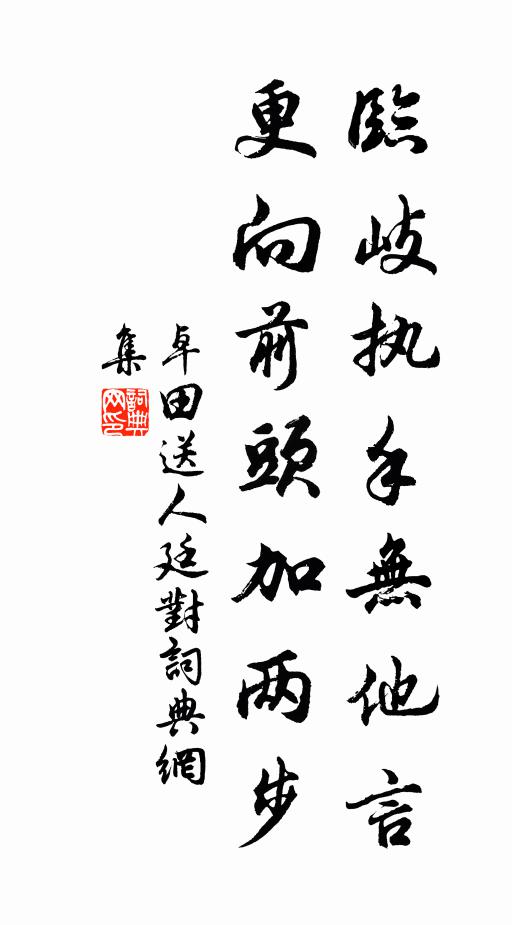 臨歧执手無他言
更向前頭加两步
卓田送人廷對詞典網
集
詞典
网印